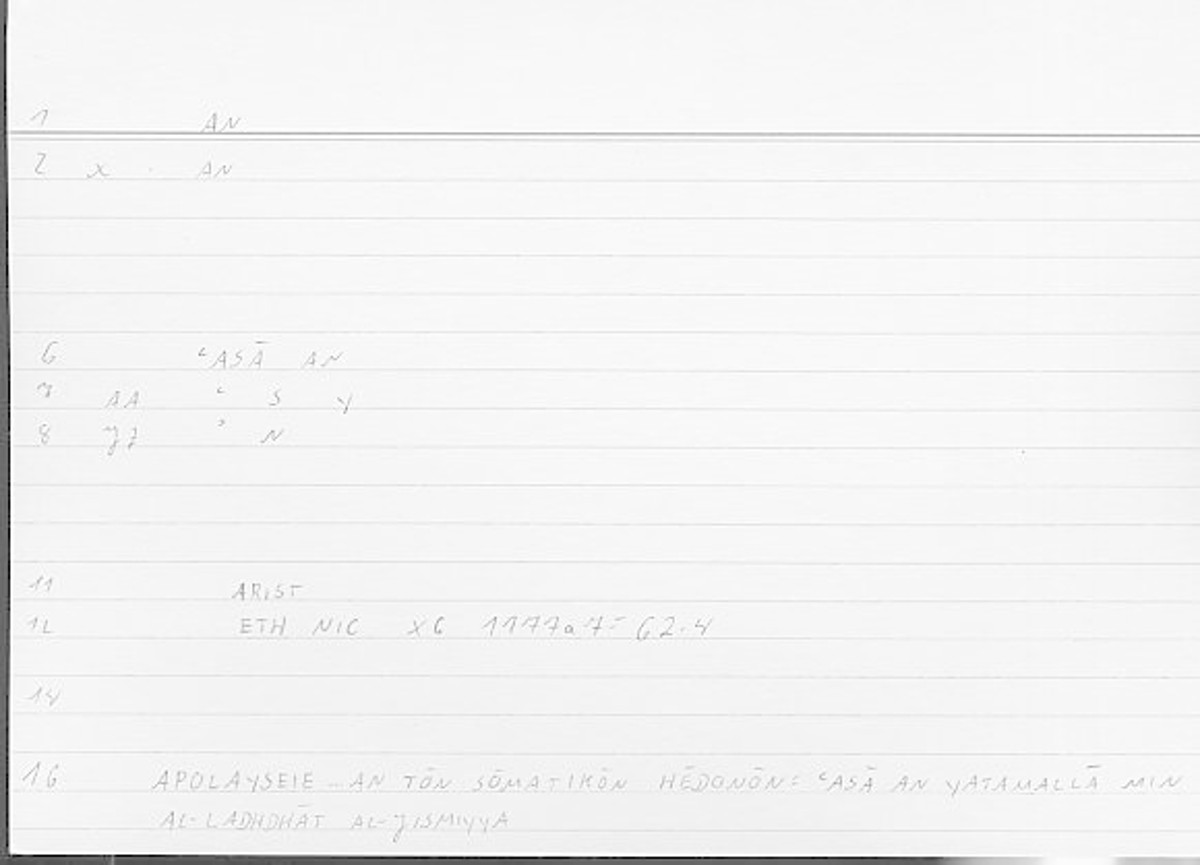 1 AN
2 x . AN
6 ʿASĀ AN
7 AA ʿ S Y
8 ʾ N
11 ARIST
12 ETH NIC X6 1177a7= 62.4
14
16 APOLAYSEIE ... AN TŌN SŌMATIKŌN HĒDONŌN= ʿASĀ AN YATAMALLĀ MIN
AL-LADHDHĀT AL-JISMIYYA